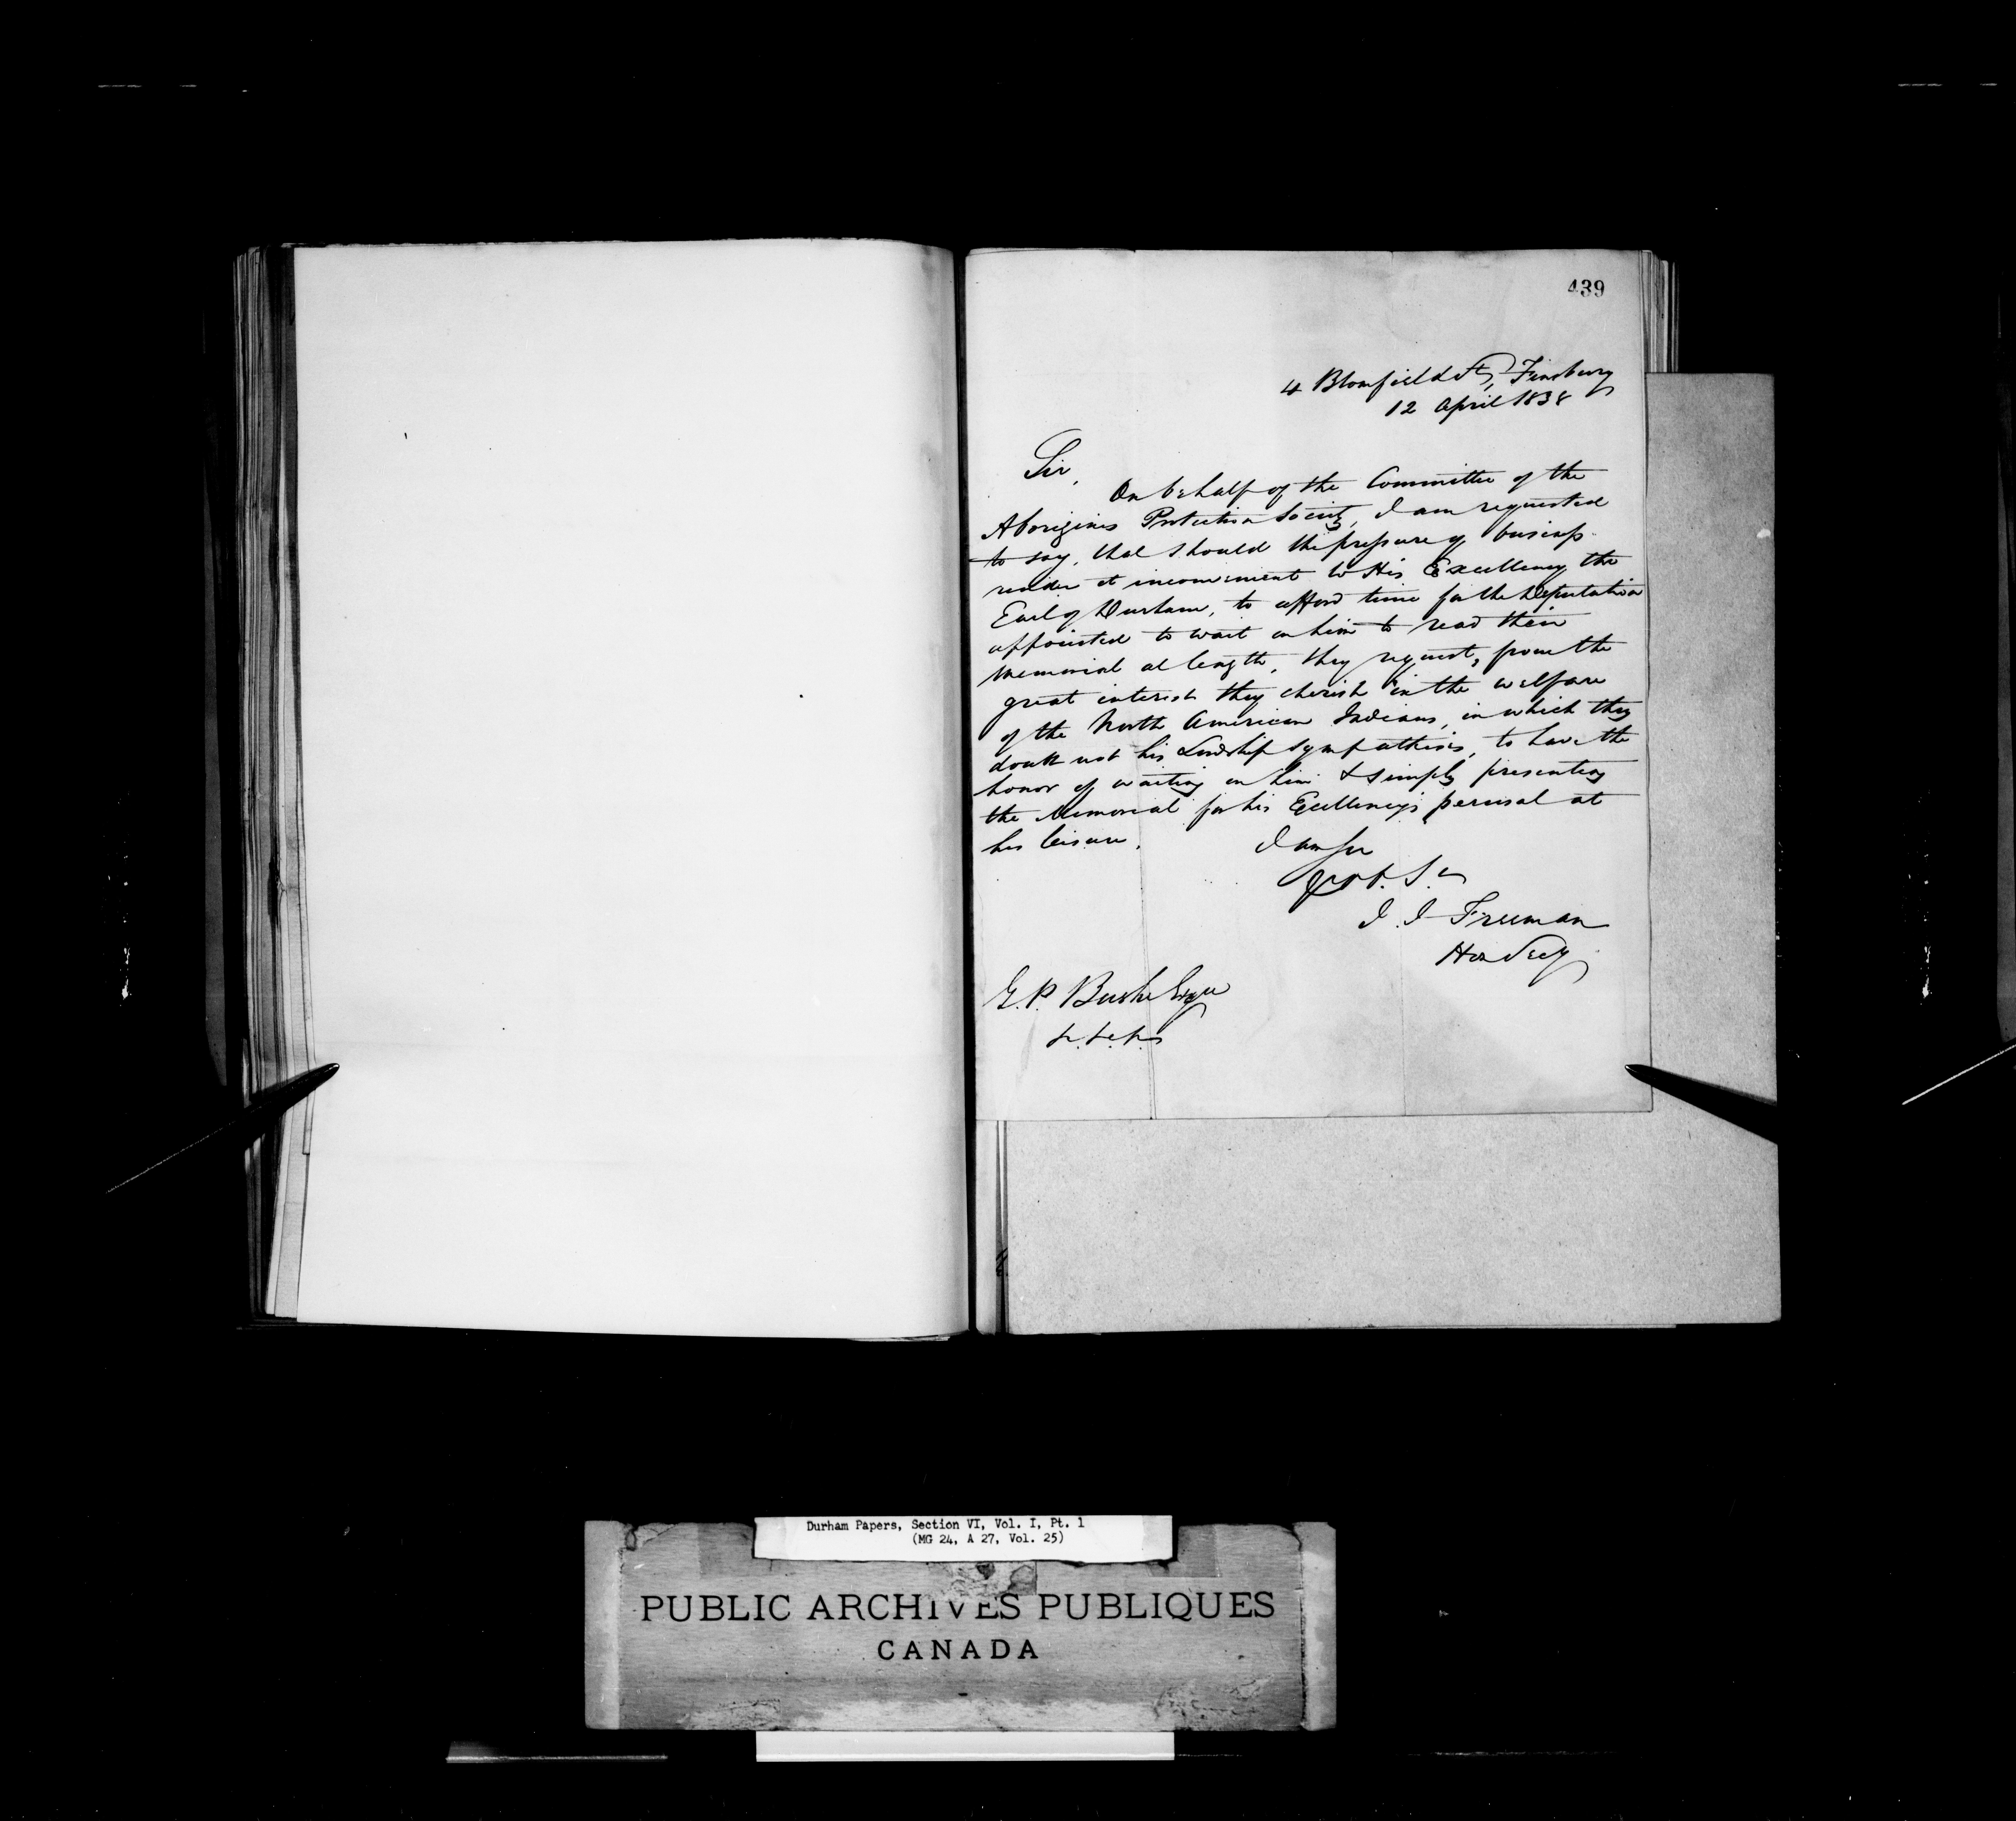 439
4 Blomfield St, Finsbury
12 April 1838
Sir,
On behalf of the Committee of the
Aborigines Protection Society, I am requested
to say, that should the pressure of business
render it inconvenient to His Excellency the
Earl of Durham, to afford time for the Deputation
appointed to wait on him to read their
Memorial at length, they request, from the
great interest they cherish in the welfare
of the North American Indians, in which they
doubt not his Lordship sympathises, to have the
honor of waiting on him & simply presenting
the Memorial for his Excellency's perusal at
his leisure.
I am Sir
J. J. Freeman
Hon Secy
G. P. Bushe Esqre
Durham Papers, Section VI, Vol. I, Pt. 1
(MG 24, A 27, Vol. 25)
PUBLIC ARCHIVES PUBLIQUES
CANADA